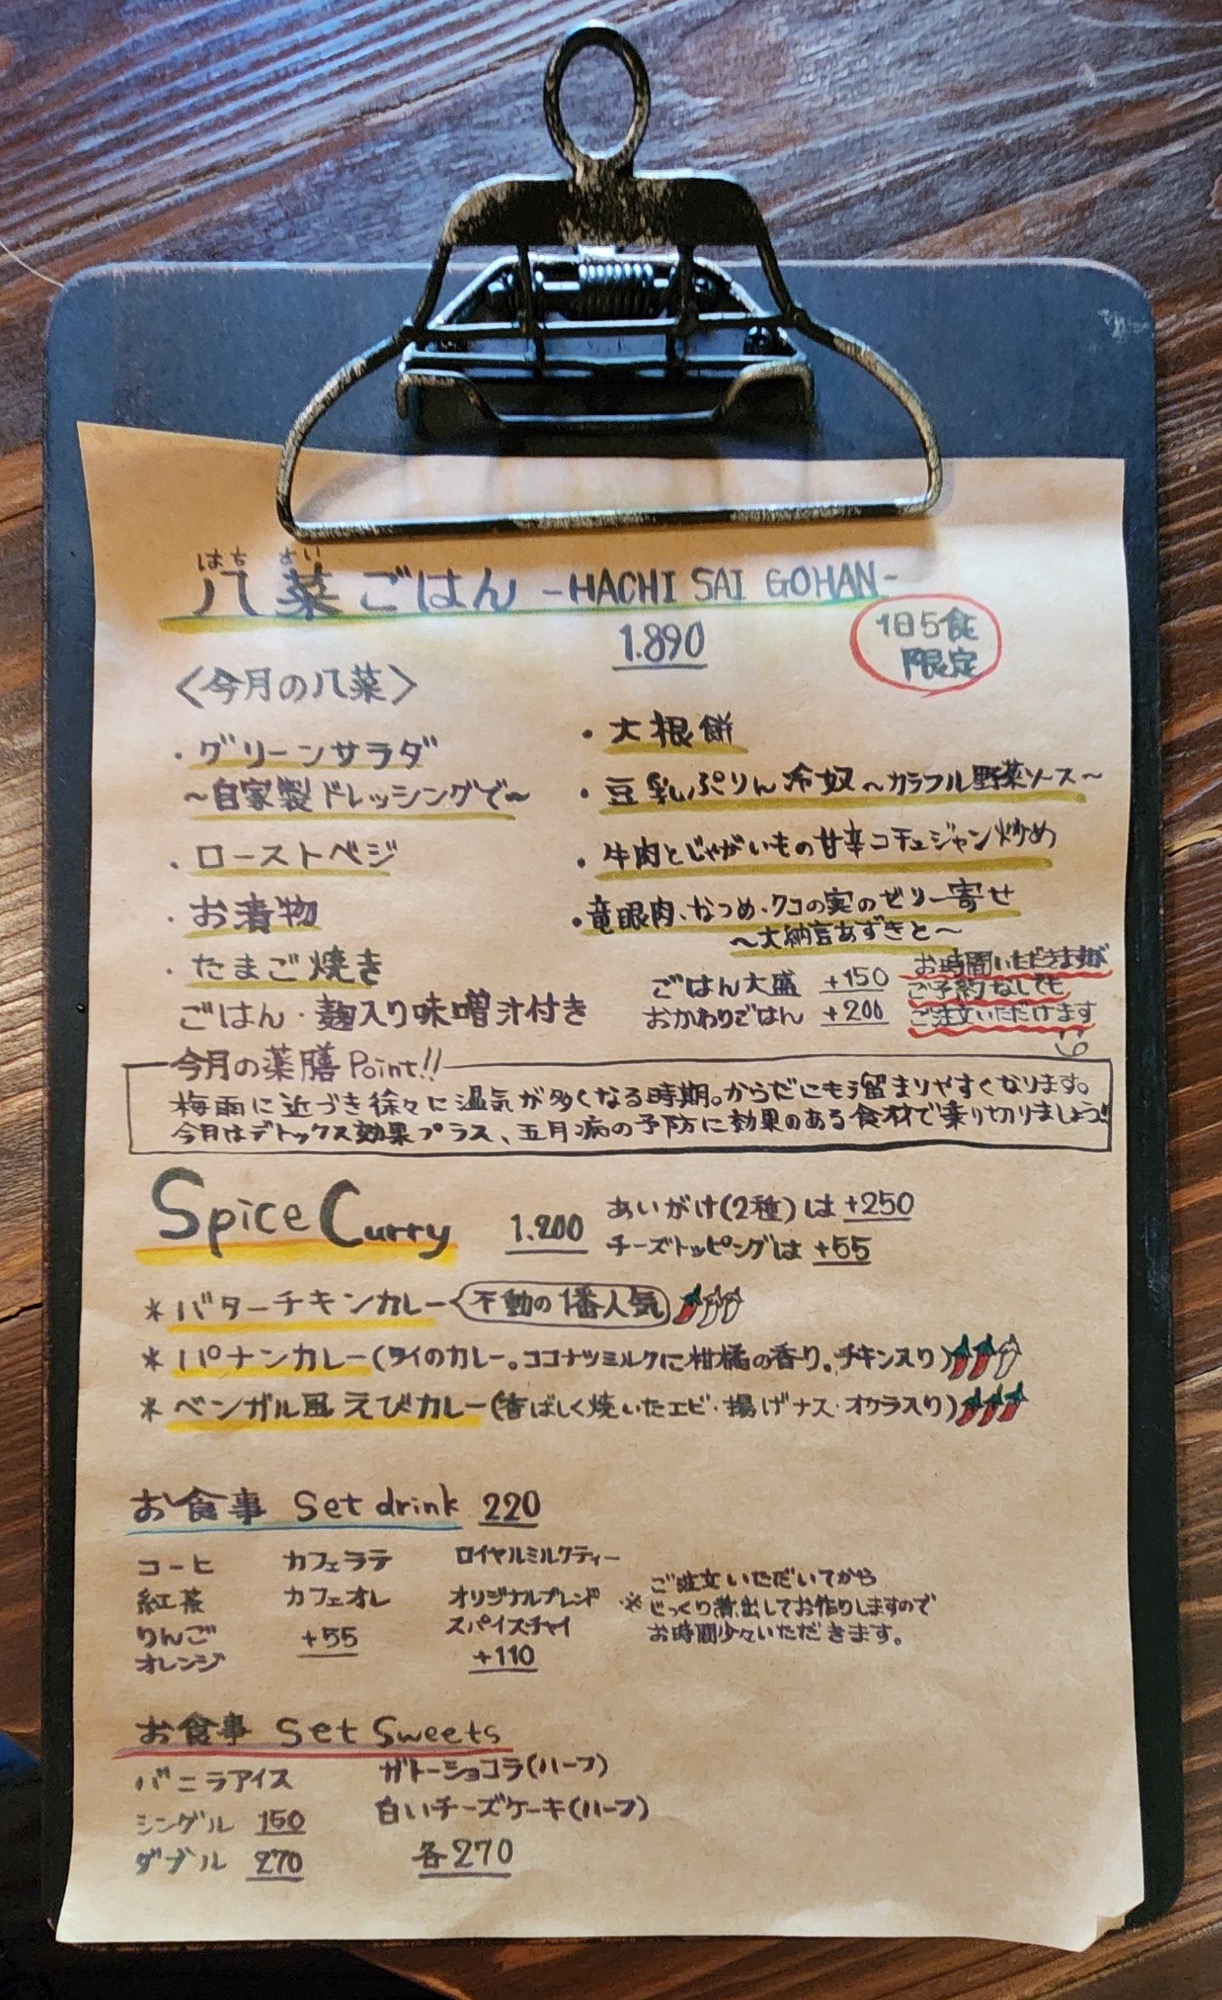 はち さい
八菜ごはん -HACHI SAI GOHAN-
1.890
1日5食
限定
〈今月の八菜〉
・グリーンサラダ
~自家製ドレッシングで~
・ローストベジ
・お漬物
・たまご焼き
・大根餅
・豆乳ぷりん冷奴~カラフル野菜ソース~
・牛肉とじゃがいもの甘辛コチュジャン炒め
・竜眼肉、なつめ・クコの実のゼリー寄せ
~大納言あずきと~
ごはん・麹入り味噌汁付き
ごはん大盛 +150
おかわりごはん +200
お時間いただきますが
ご予約なしでも
ご注文いただけます
今月の薬膳Point!!
梅雨に近づき徐々に湿気が多くなる時期。からだにも溜まりやすくなります。
今月はデトックス効果プラス、五月病の予防に効果のある食材で乗り切りましょう!!
Spice Curry 1.200
あいがけ(2種)は+250
チーズトッピングは +55
*バターチキンカレー 不動の1番人気
*パナンカレー(タイのカレー。ココナツミルクに柑橘の香り。チキン入り)
*ベンガル風えびカレー(香ばしく焼いたエビ・揚げナス・オクラ入り)
お食事 Set drink 220
コーヒ
紅茶
りんご
オレンジ
カフェラテ
カフェオレ
+55
ロイヤルミルクティー
オリジナルブレンド
スパイスチャイ
+110
ご注文いただいてから
※じっくり煮出してお作りしますので
お時間少々いただきます。
お食事 Set Sweets
バニラアイス
シングル 150
ダブル 270
ガトーショコラ(ハーフ)
白いチーズケーキ(ハーフ)
各270